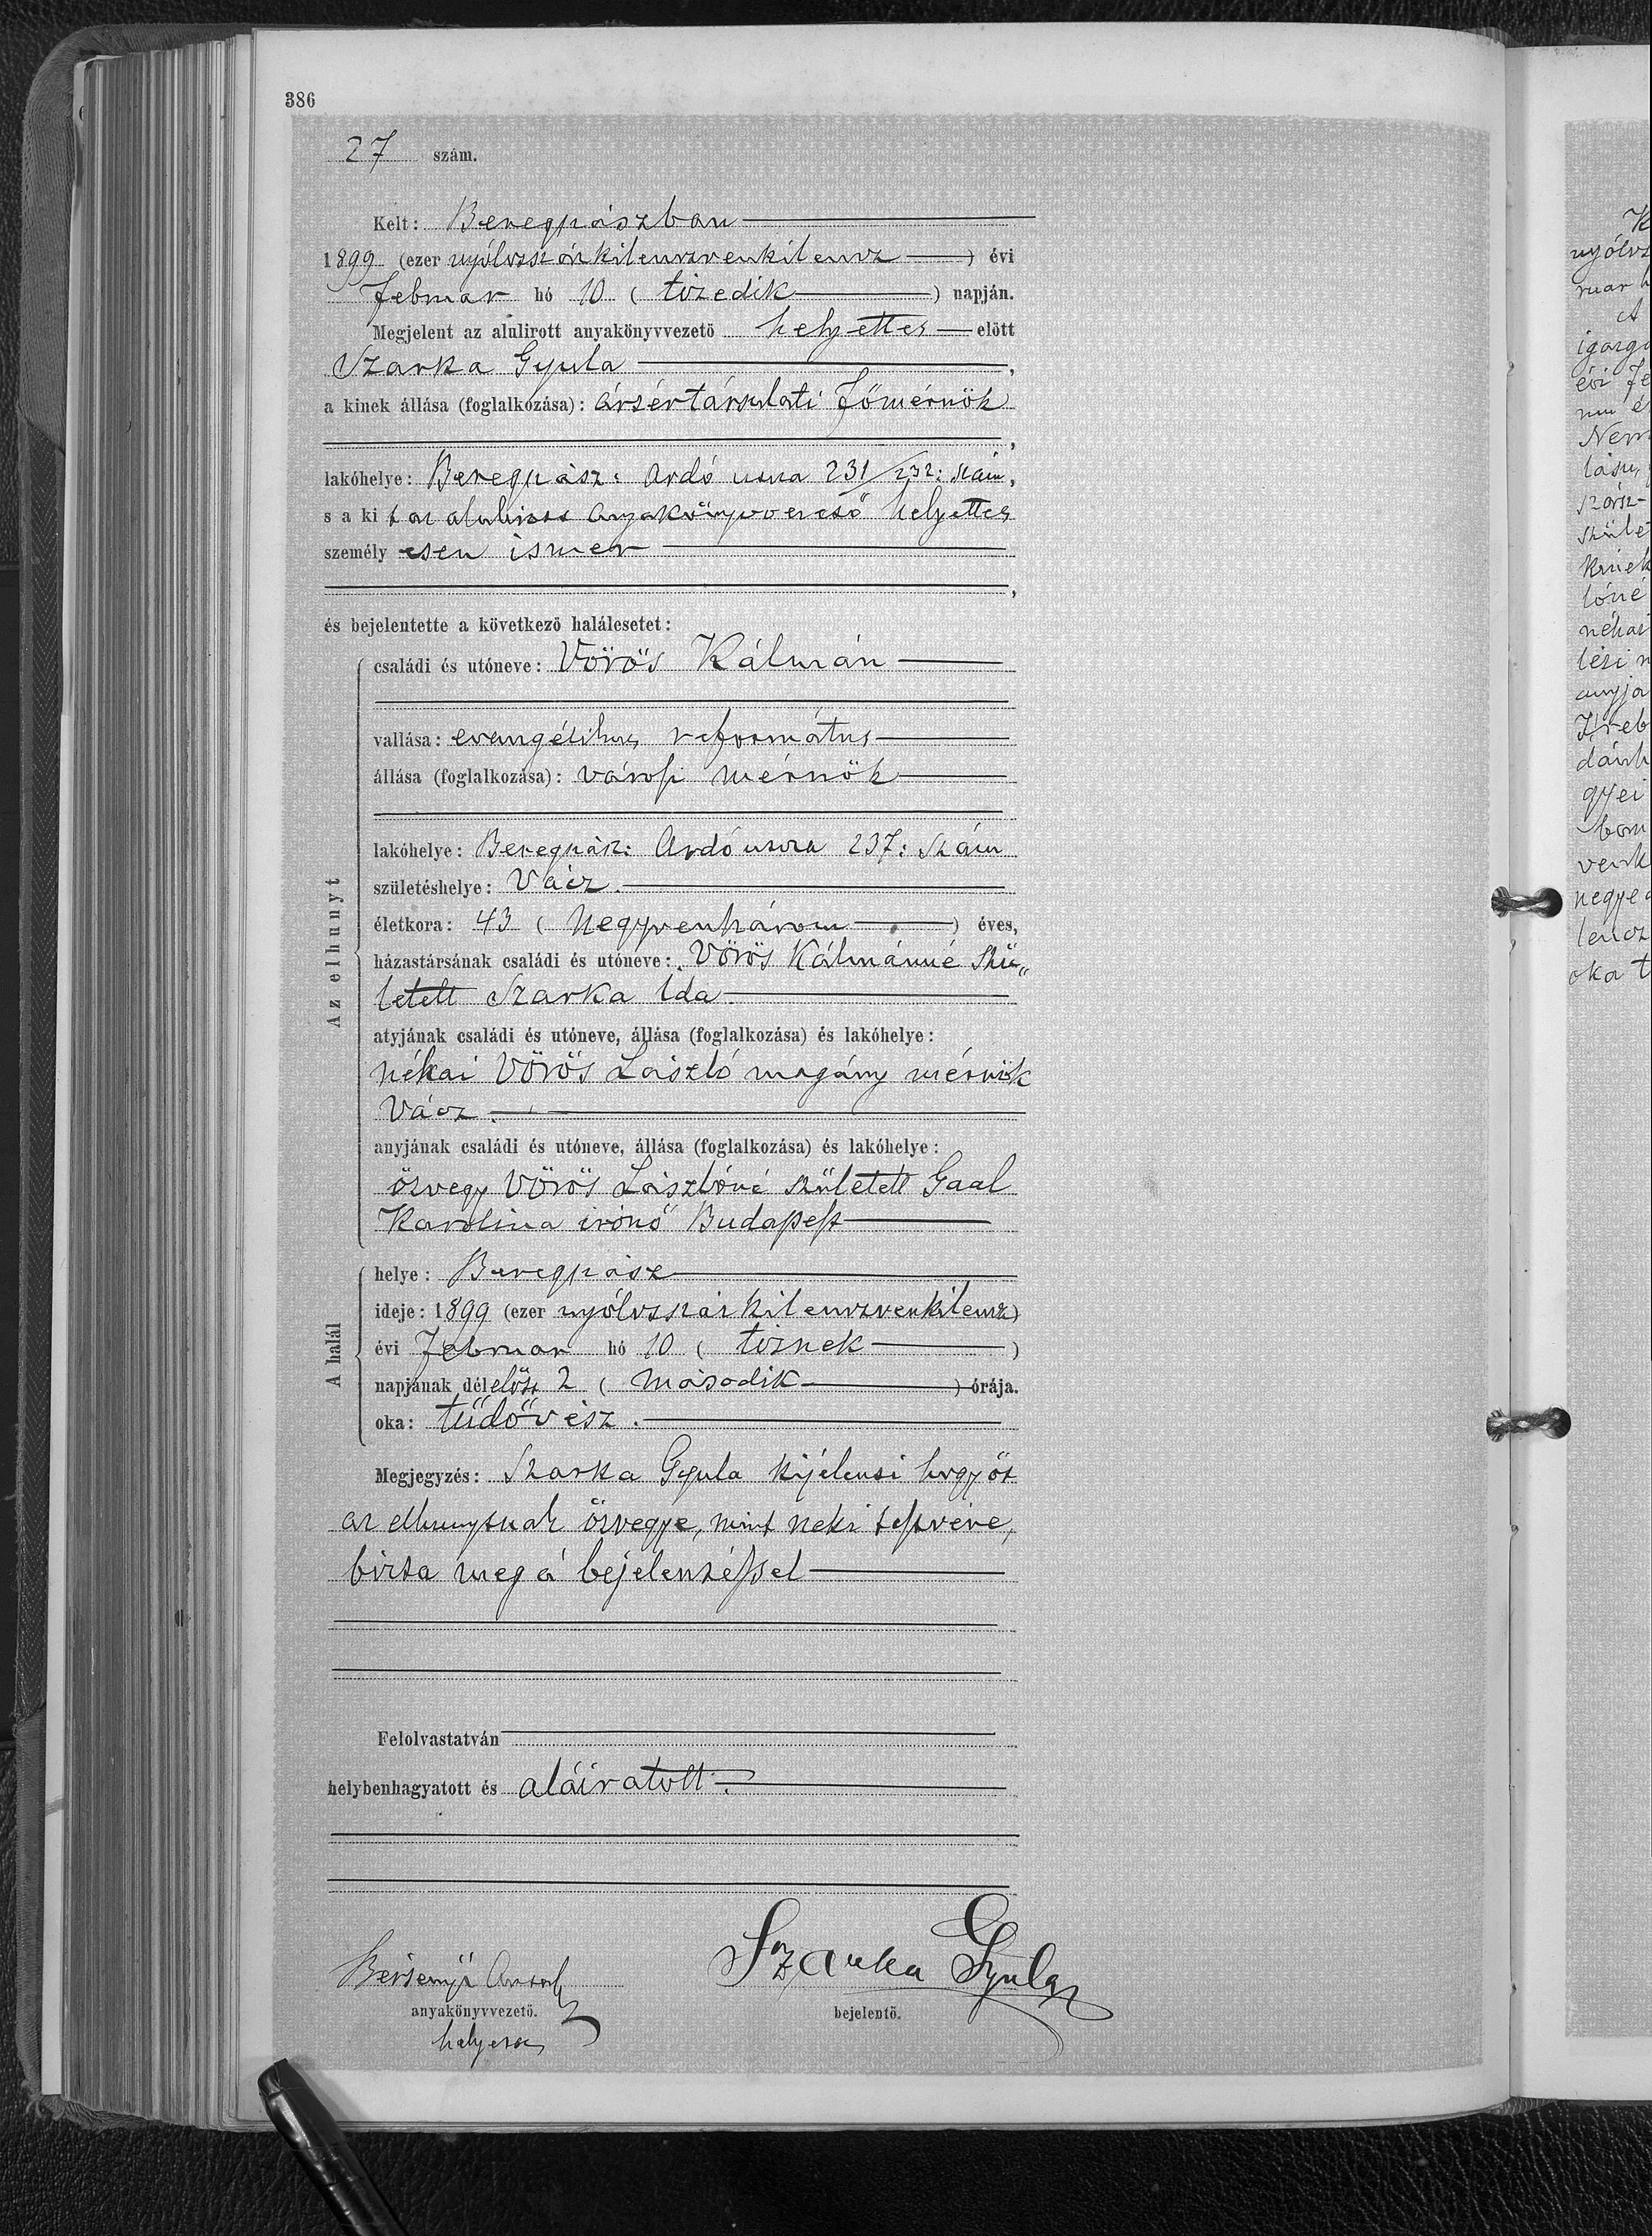 386
27 szám.
Kelt: Beregszászban
1899 (ezer nyólczszázkilenczvenkilencz) évi
Februar hó 10 (tizedik) napján.
Megjelent az alulirott anyakönyvvezető helyettes előtt
Szarka Gyula,
a kinek állása (foglalkozása): ársértársulati Főmérnök
,
lakóhelye: Beregszász: Ardó utcza 231/232: szám,
s a kit az alulirott anyakönyvvezető helyettes
személyesen ismer
,
és bejelentette a következő halálesetet:
Az elhunyt
családi és utóneve: Vörös Kálmán
vallása: evangélikus református
állása (foglalkozása): városi mérnök
lakóhelye: Beregszász: Ardó utcza 237: szám
születéshelye: Vácz.
életkora: 43 (negyvenhárom) éves,
házastársának családi és utóneve: Vörös Kálmánné szü„
letett Szarka Ida.
atyjának családi és utóneve, állása (foglalkozása) és lakóhelye:
néhai Vörös László magány mérnök
Vácz.
anyjának családi és utóneve, állása (foglalkozása) és lakóhelye:
özvegy Vörös Lászlóné született Gaal
Karolina irónő Budapest
A halál
helye: Beregszász
ideje: 1899 (ezer nyólczszázkilenczvenkilencz)
évi Februar hó 10 (tiznek)
napjának délelőtt 2 (második) órája.
oka: tüdővész.
Megjegyzés: Szarka Gyula kijelenti hogy őt
az elhunytnak özvegye, mint neki testvére,
bizta meg a bejelentéssel
Felolvastatván
helybenhagyatott és aláiratott.
Szarka Gyula
anyakönyvvezető.
bejelentő.
K
nyólcz
ruar h
A
igazga
évi fe
Nem
szász-
szüle
kinek
lóné
néhai
lési
anyja
gyei
venk
negyed
lencz
oka t